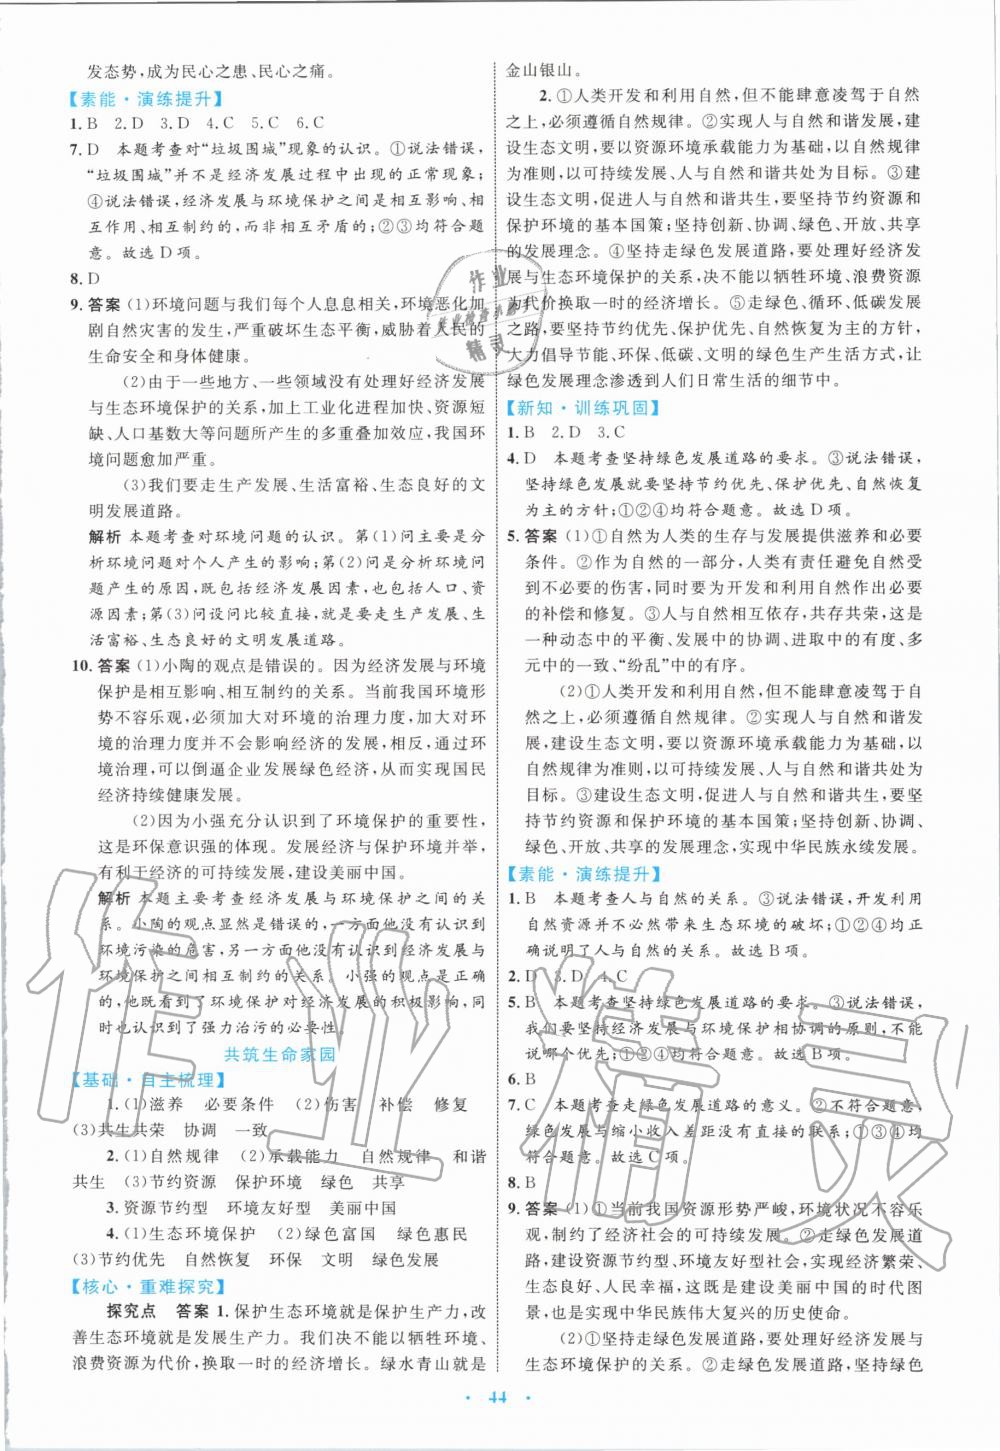 发态势,成为民心之患、民心之痛。
【素能·演练提升】
1. B 2. D 3. D 4. C 5. C 6. C
7. D 本题考查对“垃圾围城”现象的认识。①说法错误,
“垃圾围城”并不是经济发展过程中出现的正常现象;
④说法错误,经济发展与环境保护之间是相互影响、相
互作用、相互制约的,而非相互矛盾的;②③均符合题
意。故选 D 项。
8. D
9. 答案 (1)环境问题与我们每个人息息相关,环境恶化加
剧自然灾害的发生,严重破坏生态平衡,威胁着人民的
生命安全和身体健康。
(2)由于一些地方、一些领域没有处理好经济发展
与生态环境保护的关系,加上工业化进程加快、资源短
缺、人口基数大等问题所产生的多重叠加效应,我国环
境问题愈加严重。
(3)我们要走生产发展、生活富裕、生态良好的文
明发展道路。
解析 本题考查对环境问题的认识。第(1)问主要是分
析环境问题对个人产生的影响;第(2)问是分析环境问
题产生的原因,既包括经济发展方面,也包括人口、资
源因素;第(3)问设问比较直接,就是要走生产发展、生
活富裕、生态良好的文明发展道路。
10. 答案 (1)小陶的观点是错误的。因为经济发展与环境
保护是相互影响、相互制约的关系。当前我国环境形
势不容乐观,必须加大对环境的治理力度,加大对环
境的治理力度并不会影响经济的发展,相反,通过环
境治理,可以倒逼企业发展绿色经济,从而实现国民
经济持续健康发展。
(2)因为小强充分认识到了环境保护的重要性,
这是环保意识强的体现。发展经济与环境保护并举,
有利于经济的可持续发展,建设美丽中国。
解析 本题主要考查经济发展与环境保护之间的关
系。小陶的观点显然是错误的,一方面他没有认识到
环境污染的危害,另一方面他没有认识到经济发展与
环境保护之间相互制约的关系。小强的观点是正确
的,他既看到了环境保护对经济发展的积极影响,同
时也认识到了强力治污的必要性。
共筑生命家园
【基础·自主梳理】
1. (1)滋养 必要条件 (2)伤害 补偿 修复
(3)共生共荣 协调 一致
2. (1)自然规律 (2)承载能力 自然规律 和谐
共生 (3)节约资源 保护环境 绿色 共享
3. 资源节约型 环境友好型 美丽中国
4. (1)生态环境保护 (2)绿色富国 绿色惠民
(3)节约优先 自然恢复 环保 文明 绿色发展
【核心·重难探究】
探究点 答案 1. 保护生态环境就是保护生产力,改
善生态环境就是发展生产力。我们决不能以牺牲环境、
浪费资源为代价,换取一时的经济增长。绿水青山就是
金山银山。
2. ①人类开发和利用自然,但不能肆意凌驾于自然
之上,必须遵循自然规律。②实现人与自然和谐发展,建
设生态文明,要以资源环境承载能力为基础,以自然规律
为准则,以可持续发展、人与自然和谐共处为目标。③建
设生态文明,促进人与自然和谐共生,要坚持节约资源和
保护环境的基本国策;坚持创新、协调、绿色、开放、共享
的发展理念。④坚持走绿色发展道路,要处理好经济发展
与生态环境保护的关系,决不能以牺牲环境、浪费资源
为代价换取一时的经济增长。⑤走绿色、循环、低碳发展
之路,要坚持节约优先、保护优先、自然恢复为主的方针,
大力倡导节能、环保、低碳、文明的绿色生产生活方式,让
绿色发展理念渗透到人们日常生活的细节中。
【新知·训练巩固】
1. B 2. D 3. C
4. D 本题考查坚持绿色发展道路的要求。③说法错误,
坚持绿色发展就要坚持节约优先、保护优先、自然恢复
为主的方针;①②④均符合题意。故选 D 项。
5. 答案 (1)①自然为人类的生存与发展提供滋养和必要
条件。②作为自然的一部分,人类有责任避免自然受到
不必要的伤害,同时要为开发和利用自然作出必要
的补偿和修复。③人与自然相互依存,共存共荣,这是
一种动态中的平衡、发展中的协调、进取中的有度、多
元中的一致、“纷乱”中的有序。
(2)①人类开发和利用自然,但不能肆意凌驾于自
然之上,必须遵循自然规律。②实现人与自然和谐发
展,建设生态文明,要以资源环境承载能力为基础,以
自然规律为准则,以可持续发展、人与自然和谐共处为
目标。③建设生态文明,促进人与自然和谐共生,要坚
持节约资源和保护环境的基本国策;坚持创新、协调、
绿色、开放、共享的发展理念,实现中华民族永续发展。
【素能·演练提升】
1. B 本题考查人与自然的关系。③说法错误,开发利用
自然资源并不必然带来生态环境的破坏;①②④均正
确说明了人与自然的关系。故选 B 项。
2. D 3. D 4. C
5. B 本题考查坚持绿色发展道路的要求。③说法错误,
我们要坚持经济发展与环境保护相协调的原则,不能
说哪个优先;①②④符合题意。故选 B 项。
6. B
7. C 本题考查走绿色发展道路的意义。②不符合题意,
绿色发展与缩小收入差距没有直接的联系;①③④均
符合题意。故选 C 项。
8. B
9. 答案 (1)①当前我国资源形势严峻,环境状况不容乐
观,制约了经济社会的可持续发展。②走绿色发展道路,
建设资源节约型、环境友好型社会,实现经济繁荣、
生态良好、人民幸福,这既是建设美丽中国的时代图
景,也是实现中华民族伟大复兴的历史使命。
(2)①坚持走绿色发展道路,要处理好经济发展与
生态环境保护的关系。②走绿色发展道路,坚持绿色
· 44 ·
作业
精灵
作业
精灵